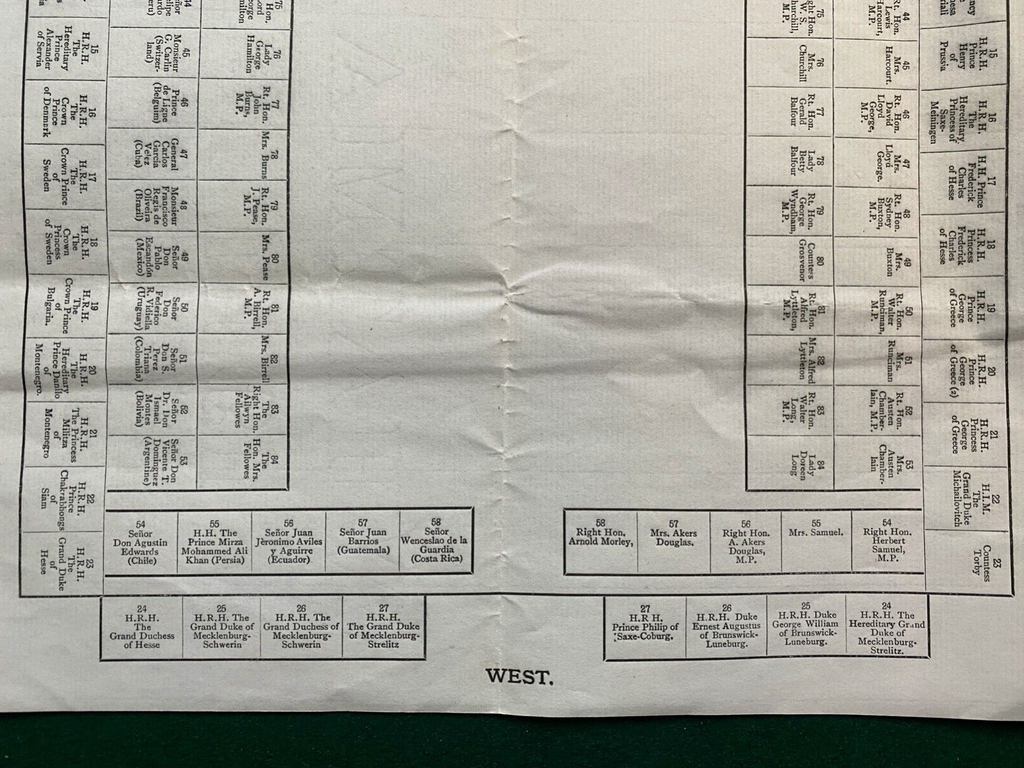 15
H.R.H.
The
Hereditary
Prince
Alexander
of Servia
16
H.R.H.
The
Crown
Prince
of Denmark
17
H.R.H.
The
Crown Prince
of
Sweden
18
H.R.H.
The
Crown
Princess
of Sweden
19
H.R.H.
The
Crown Prince
of
Bulgaria.
20
H.R.H.
The
Hereditary
Prince Danilo
of
Montenegro.
21
H.R.H.
The Princess
Militza
of
Montenegro
22
H.R.H.
Prince
Chakrabhongs
of
Siam
23
H.R.H.
The
Grand Duke
of
Hesse
45
Monsieur
G. Carlin
(Switzer-
land)
46
Prince
de Ligne
(Belguim)
47
General
Carlos
Garcia
Velez
(Cuba)
48
Monsieur
Francisco
Regis de
Oliveira
(Brazil)
49
Señor
Don
Pablo
Escandón
(Mexico)
50
Señor
Don
Federico
R. Vidiella
(Uruguay)
51
Señor
Don S.
Perez
Triana
(Colombia)
52
Señor
Dr. Don
Ismael
Montes
(Bolivia)
53
Señor Don
Vicente T.
Dominguez
(Argentine)
75
Hon.
Lord
George
Hamilton
76
Lady
George
Hamilton
77
Rt. Hon.
John
Burns,
M.P.
78
Mrs. Burns
79
Rt. Hon.
J. Pease,
M.P.
80
Mrs. Pease
81
Rt. Hon.
A. Birrell,
M.P.
82
Mrs. Birrell
83
The
Right Hon.
Ailwyn
Fellowes
84
The
Hon. Mrs.
Fellowes
75
Right Hon.
W. S.
Churchill,
M.P.
76
Mrs.
Churchill
77
Rt. Hon.
Gerald
Balfour
78
Lady
Betty
Balfour
79
Rt. Hon.
George
Wyndham,
M.P.
80
Counters
Grosvenor
81
Rt. Hon.
Alfred
Lyttleton,
M.P.
82
Mrs. Alfred
Lyttleton
83
Rt. Hon.
Walter
Long,
M.P.
84
Lady
Doreen
Long
44
Rt. Hon.
Lewis
Harcourt,
M.P.
45
Mrs.
Harcourt.
46
Rt. Hon.
David
Lloyd
George,
M.P.
47
Mrs.
Lloyd
George.
48
Rt. Hon.
Sydney
Buxton,
M.P.
49
Mrs.
Buxton
50
Rt. Hon.
Walter
Runciman,
M.P.
51
Mrs.
Runciman
52
Rt. Hon.
Austen
Chamber-
lain, M.P.
53
Mrs.
Austen
Chamber-
lain
15
H.R.H.
Prince
Henry
of
Prussia
16
H.R.H.
The
Hereditary
Princess of
Saxe-
Meiningen
17
H.H. Prince
Frederick
Charles
of Hesse
18
H.R.H.
Princess
Frederick
Charles
of Hesse
19
H.R.H.
Prince
George
of Greece
20
H.R.H.
Prince
George
of Greece (2)
21
H.R.H.
Princess
George
of Greece
22
H.I.M.
The
Grand Duke
Michailovitch
23
Countess
Torby
54
Señor
Don Agustin
Edwards
(Chile)
55
H.H. The
Prince Mirza
Mohammed Ali
Khan (Persia)
56
Señor Juan
Jèronimo Aviles
y Aguirre
(Ecuador)
57
Señor Juan
Barrios
(Guatemala)
58
Señor
Wenceslao de la
Guardia
(Costa Rica)
58
Right Hon.
Arnold Morley,
57
Mrs. Akers
Douglas.
56
Right Hon.
A. Akers
Douglas,
M.P.
55
Mrs. Samuel.
54
Right Hon.
Herbert
Samuel,
M.P.
24
H.R.H.
The
Grand Duchess
of Hesse
25
H.R.H. The
Grand Duke of
Mecklenburg-
Schwerin
26
H.R.H. The
Grand Duchess of
Mecklenburg-
Schwerin
27
H.R.H.
The Grand Duke
of Mecklenburg-
Strelitz
27
H.R H.
Prince Philip of
Saxe-Coburg.
26
H.R.H. Duke
Ernest Augustus
of Brunswick-
Luneburg.
25
H.R.H. Duke
George William
of Brunswick-
Luneburg.
24
H.R.H. The
Hereditary Grand
Duke of
Mecklenburg-
Strelitz.
WEST.